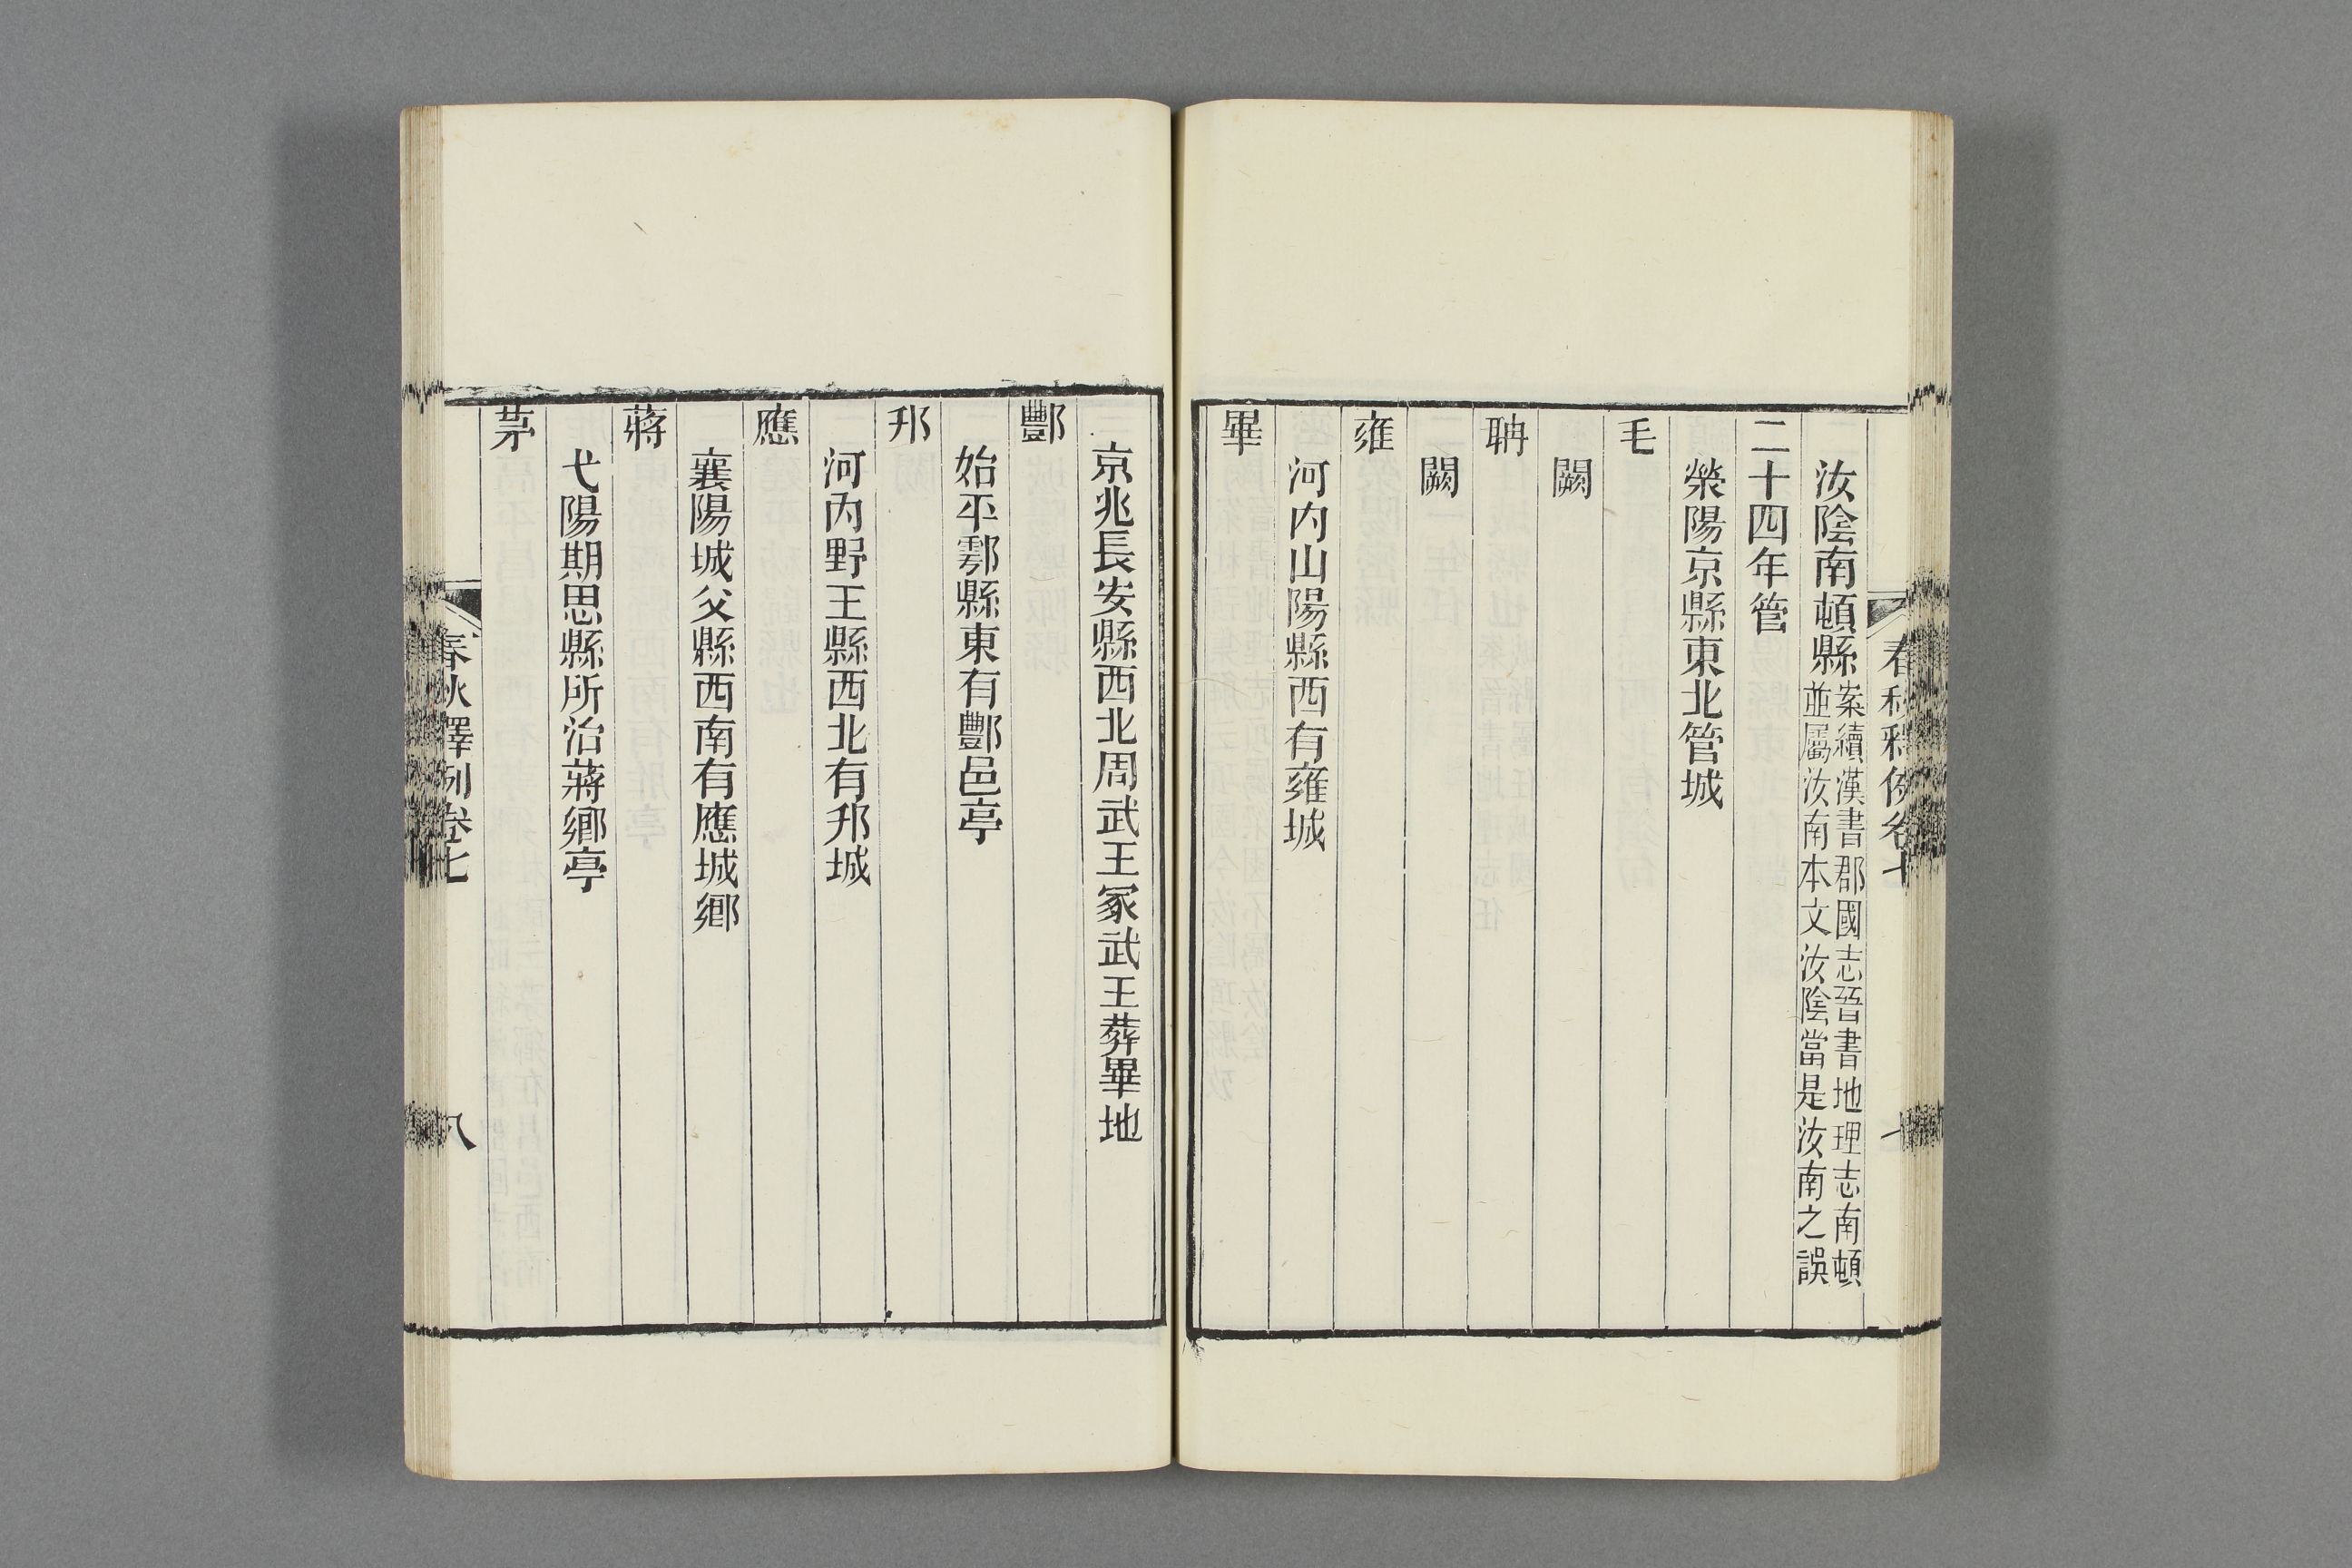 汝陰南頓縣案續漢書郡國志晉書地理志南頓
並屬汝南本文汝陰當是汝南之誤
二十四年管
滎陽京縣東北管城
毛
闕
聃
闕
雍
河内山陽縣西有雍城
畢
京兆長安縣西北周武王冢武王葬畢地
酆
始平鄠縣東有酆邑亭
邘
河内野王縣西北有邘城
應
襄陽城父縣西南有應城鄉
蔣
弋陽期思縣所治蔣鄉亭
茅
春秋釋例卷七
八